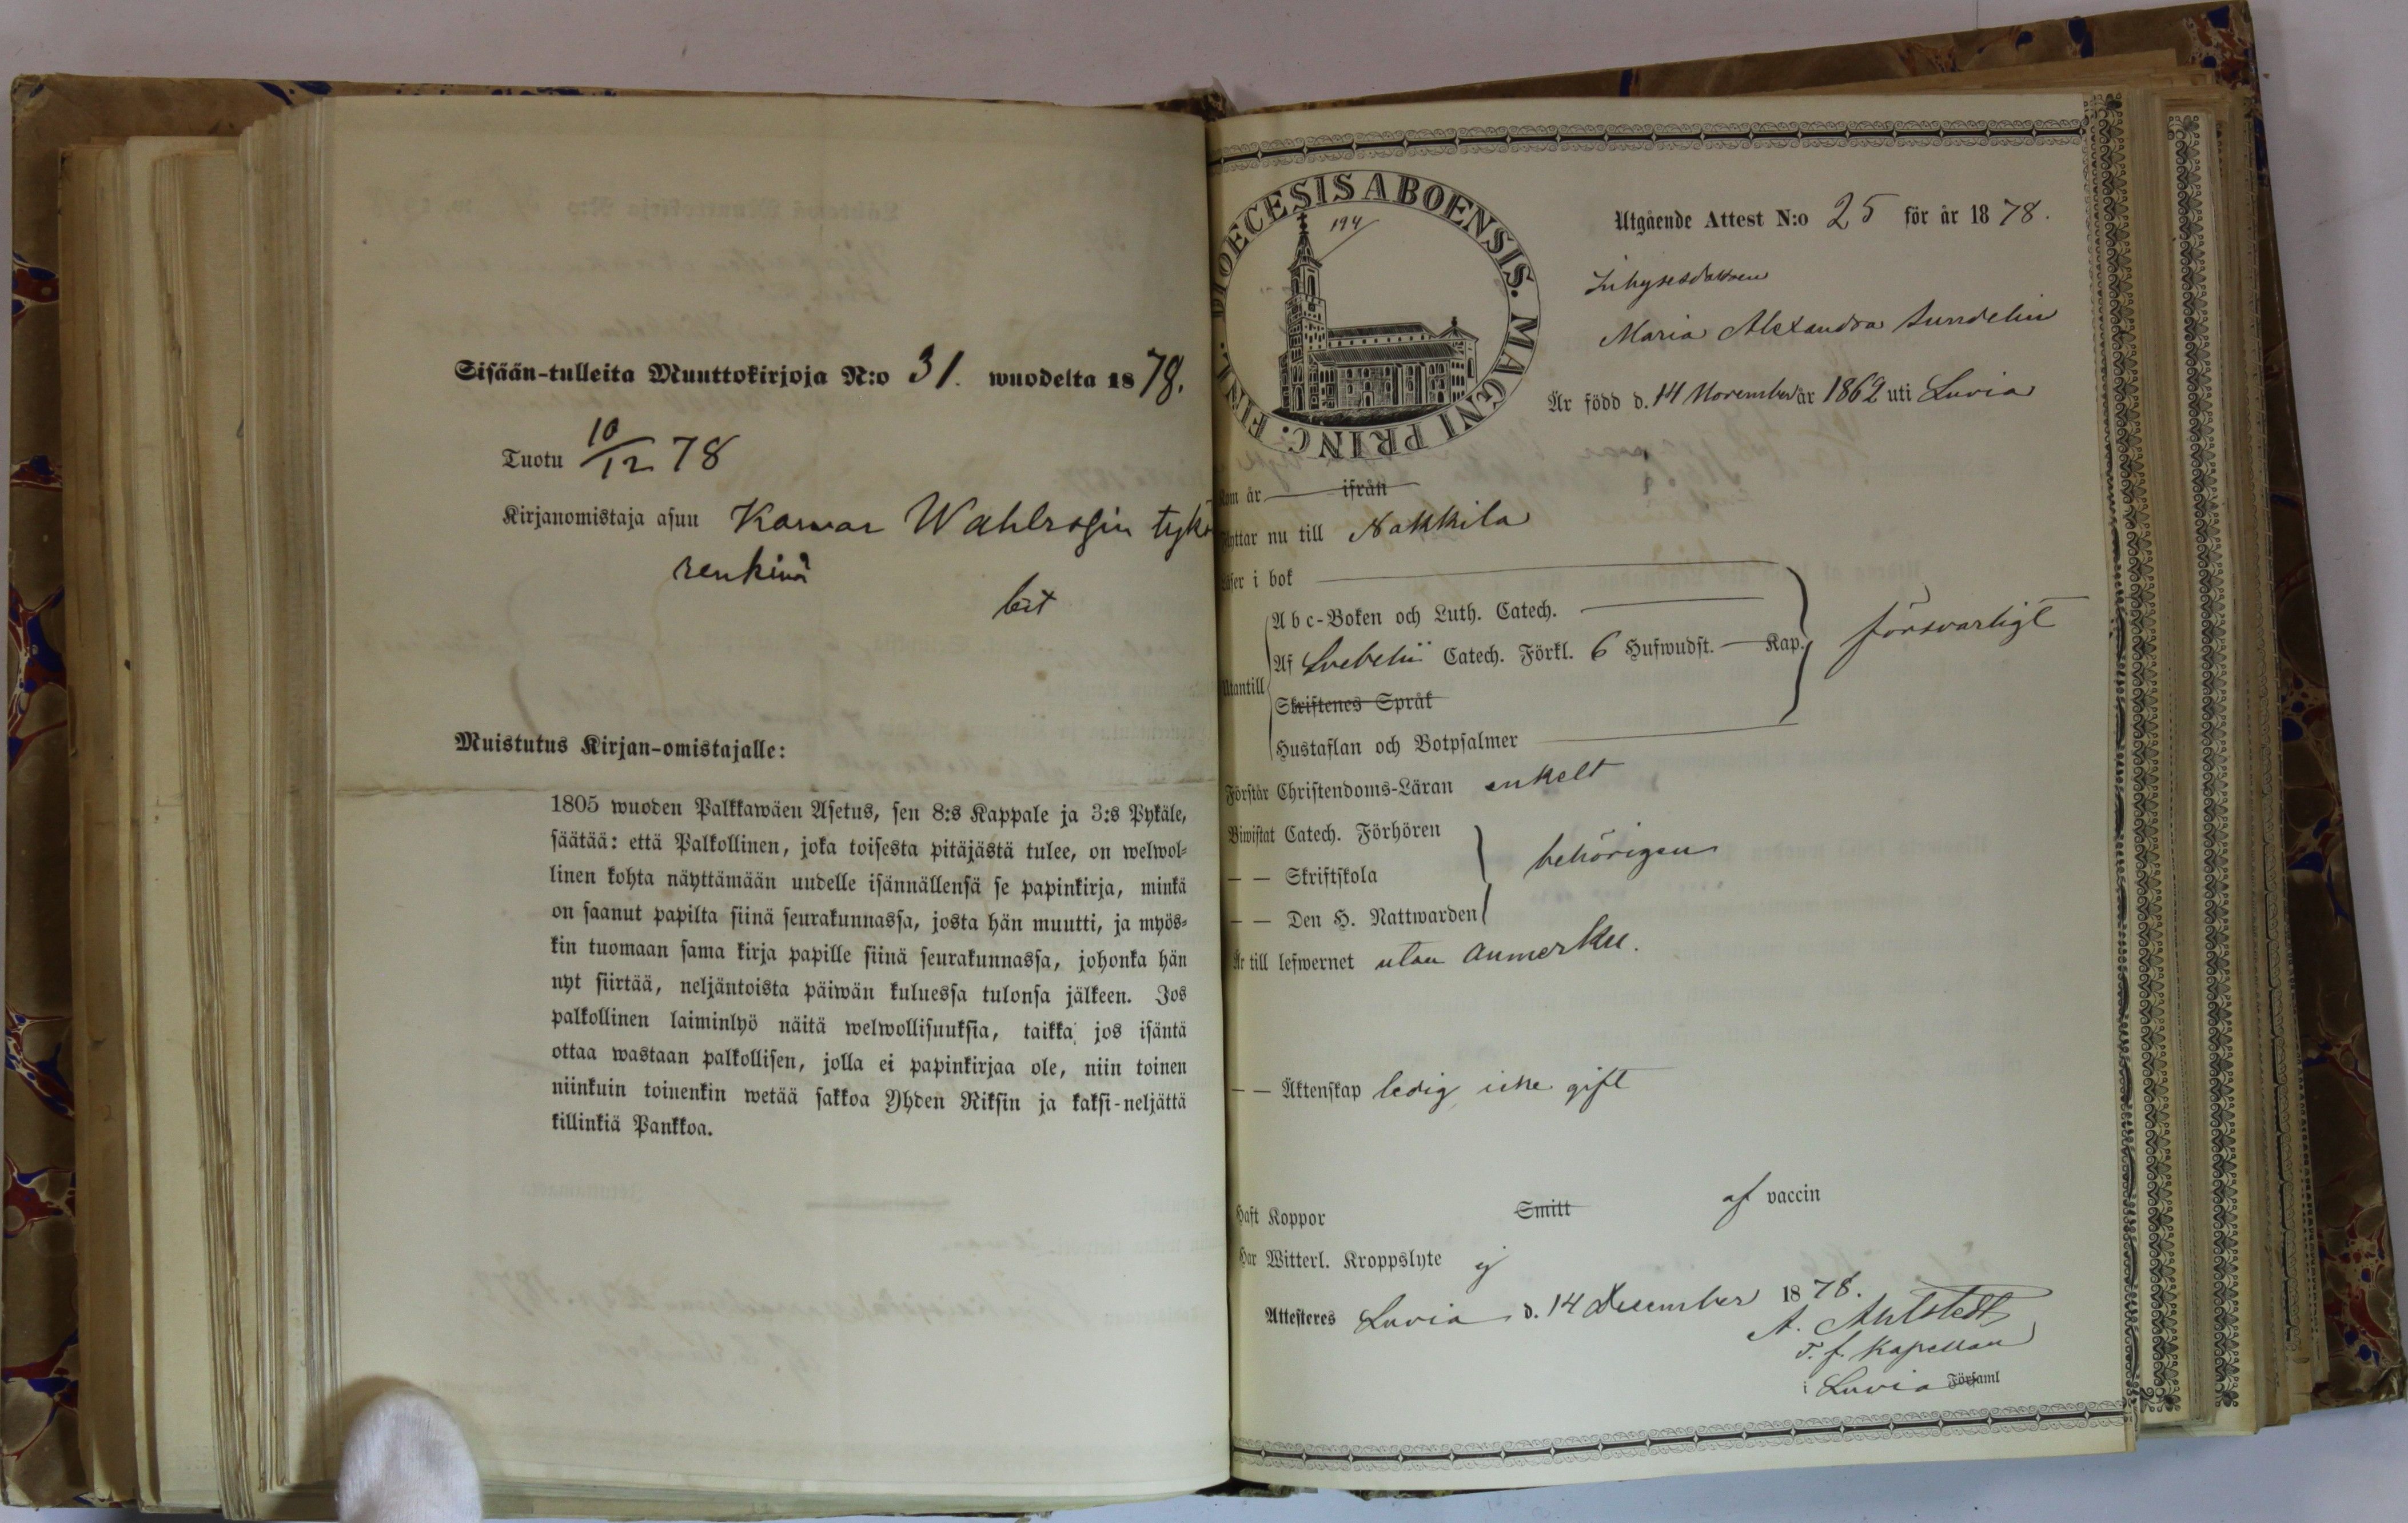 Sisään-tulleita Muuttokirjoja N:o 31. wuodelta 1878.
Tuotu 10/12 78
Kirjanomistaja asuu
renkinä
Muistutus Kirjan-omistajalle:
1805 wuoden Palkkawäen Asetus, sen 8:s Kappale ja 3:s Pykäle,
säätää: että Palkollinen, joka toisesta pitäjästä tulee, on welwol-
linen kohta näyttämään uudelle isännällensä se papinkirja, minkä
on saanut papilta siinä seurakunnassa, josta hän muutti, ja myös-
kin tuomaan sama kirja papille siinä seurakunnassa, johonka hän
nyt siirtää, neljäntoista päiwän kuluessa tulonsa jälkeen. Jos
palkollinen laiminlyö näitä welwollisuuksia, taikka jos isäntä
ottaa wastaan palkollisen, jolla ei papinkirjaa ole, niin toinen
niinkuin toinenkin wetää sakkoa Yhden Riksin ja kaksi-neljättä
killinkiä Pankkoa.
DIOECESIS ABOENSIS. MAGNI PRINC. FINL.
194
Utgående Attest N:o 25 för år 1878.
Inhysesdottren
Maria Alexandra Sundelin
Är född d. 14 November år 1862 uti Luvia
Kom år ifrån
Flyttar nu till Nakkila
Läser i bok
Abc-Boken och Luth. Catech.
Utantill Af Svebelii Catech. Förkl. 6 Hufwudst. — Kap. försvarligt
Skriftenes Språk
Hustaflan och Botpsalmer
Förstår Christendoms-Läran enkelt
Biwistat Catech. Förhören
— — Skriftskola behörigen
— — Den H. Nattwarden
Är till lefwernet utan anmerkn.
— — Äktenskap ledig, icke gift
Haft Koppor Smitt af vaccin
Har Witterl. Kroppslyte ej
Attesteres Luvia d. 14 December 1878.
A. Ahlstedt
T. f. Kapellan
i Luvia Församl